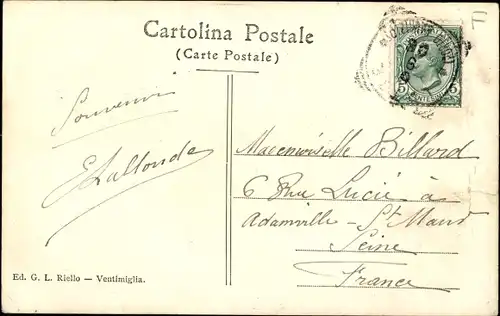 Cartolina Postale
(Carte Postale)
5 5
Souvenir
ELallonde
Macemoiselle Billard
6 Rue Lucie à
Adamville - St Maur
Seine
France
Ed. G. L. Riello — Ventimiglia.